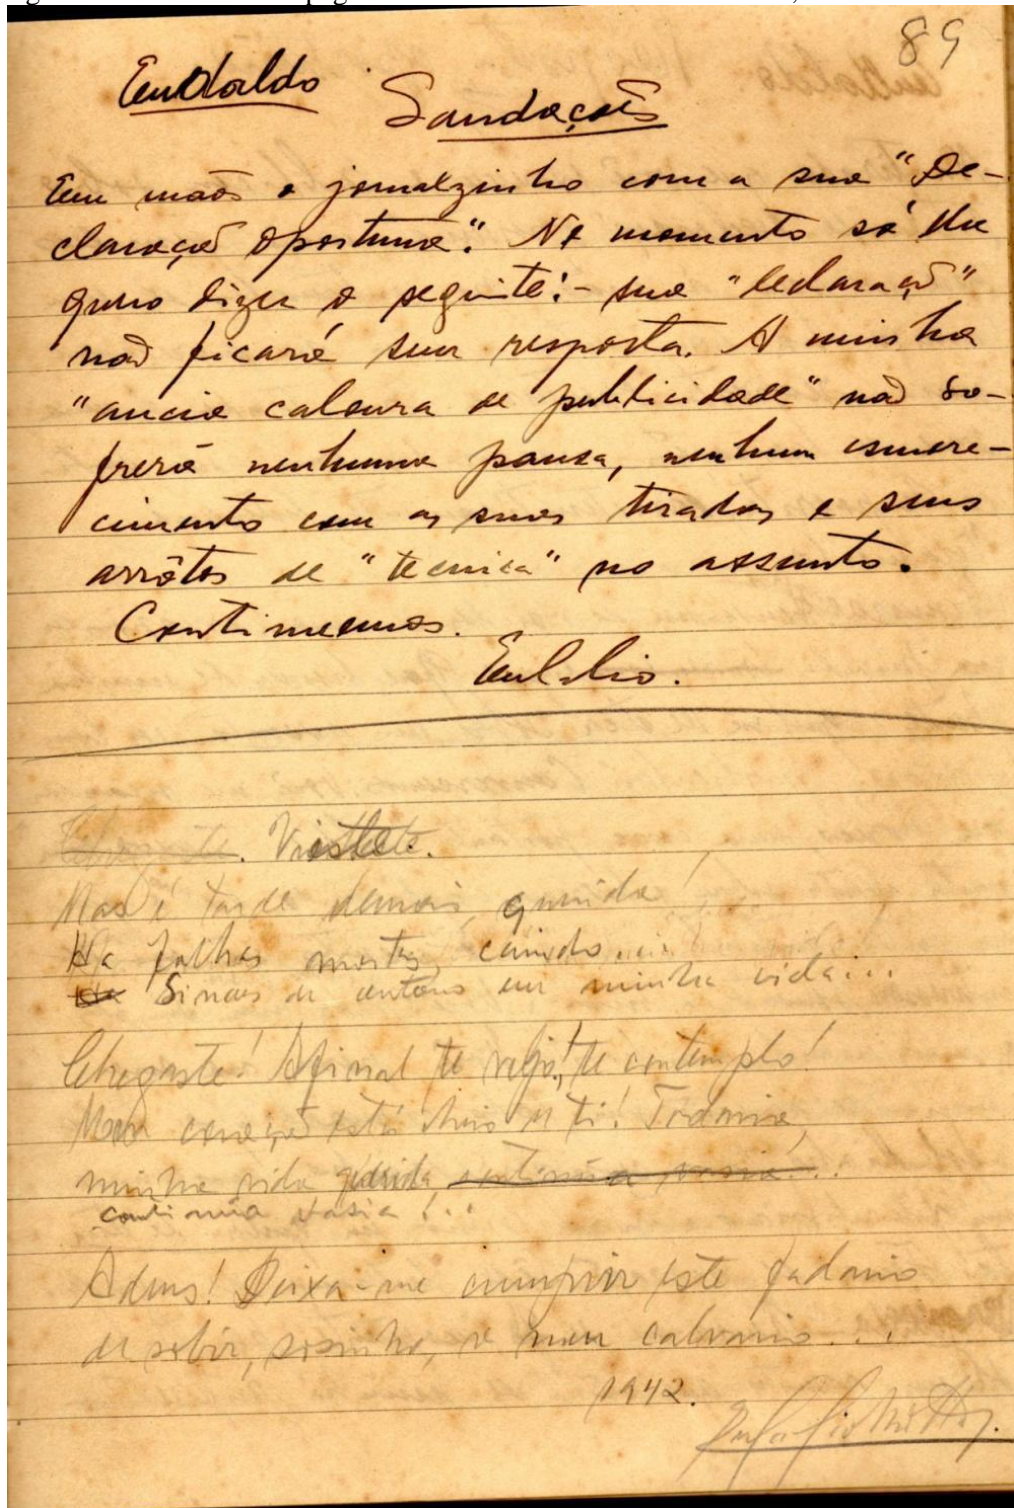 89
Eudaldo
Saudações
Em mãos o jornalzinho com a sua "De-
claração oportuna". No momento só lhe
quero dizer o seguinte:- sua "declaração"
não ficará sem resposta. A minha
"ancia caloura de publicidade" não so-
frerá nenhuma pausa, nenhum esmore-
cimento com as suas tiradas e seus
arrôtos de "tecnica" no assunto.
Continuemos.
Eulalio.
Chegaste. Vieste
Mas é tarde demais, querida!
Ha folhas mortas, caindo...
Ha Sinaes de outono em minha vida...
Chegaste! Afinal te vejo!, te contemplo!
Meu coração está cheio de ti! Todavia,
minha vida querida continúa vasia...
continúa vasia!...
Adeus! Deixa-me cumprir este fadario
de subir, sosinho, o meu calvario...
1942.
Eulalio Motta.